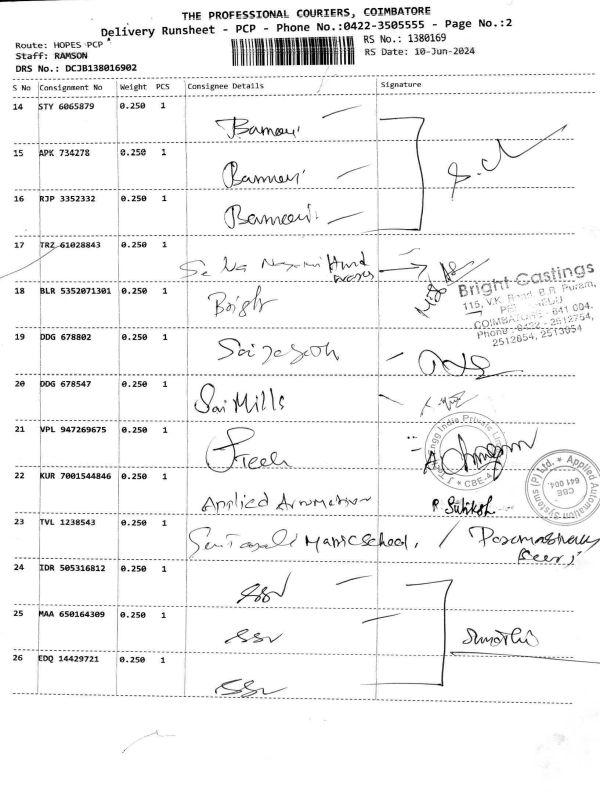 THE PROFESSIONAL COURIERS, COIMBATORE
Delivery Runsheet - PCP - Phone No.:0422-3505555 - Page No.:2
Route: HOPES PCP
RS No.: 1380169
Staff: RAMSON
RS Date: 10-Jun-2024
DRS No.: DCJB138016902
S No Consignment No Weight PCS Consignee Details Signature
14 STY 6065879 0.250 1
15 APK 734278 0.250 1
16 RJP 3352332 0.250 1
17 TRZ 61028843 0.250 1
18 BLR 5352071301 0.250 1 Bright
Bright Castings
115, V.K. Road, B.R. Puram,
COIMBATORE - 641 004.
Phone : 0422 - 2512754,
2512654, 2513954
19 DDG 678802 0.250 1
20 DDG 678547 0.250 1 Sai Mills
21 VPL 947269675 0.250 1
India Private
CBE-4
22 KUR 7001544846 0.250 1 Applied Automation
Applied Automation Systems (P) Ltd.
CBE
641 004.
23 TVL 1238543 0.250 1 Matric School,
24 IDR 505316812 0.250 1 SSV
25 MAA 650164309 0.250 1 SSV
Sumathi
26 EDQ 14429721 0.250 1 SSV